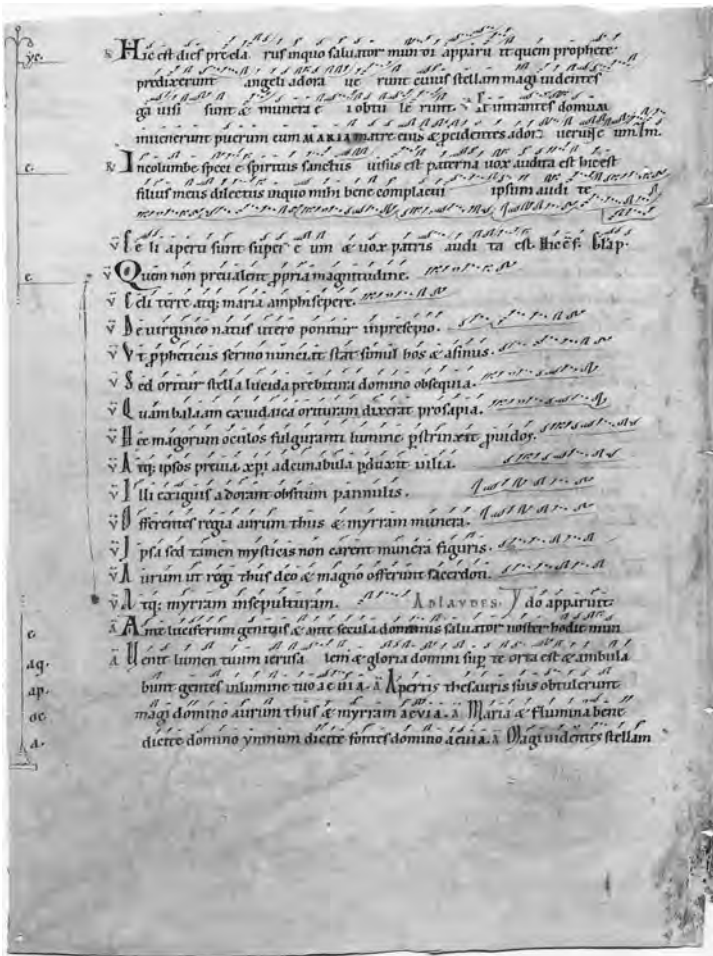 ℟ Hic est dies precla rus inquo saluator mun di apparu it quem prophete
predixerunt angeli adora ue runt cuius stellam magi uidentes
ga uisi sunt & munera e i obtu le runt. ℣ Et intrantes domum
inuenerunt puerum cum MARIA matre eius & pcidentes ador uerunt e um.
℟ Incolumbe speci e spiritus sanctus uisus est paterna uox audita est hic est
filius meus dilectus inquo mihi bene complacui ipsum audi te
v̄ Ce li aperti sunt super e um & uox patris audi ta est. Hic ē f.
v̄ Quem non preualent ppria magnitudine.
v̄ Celi terre atq; maria amphisepere.
v̄ De uirgineo natus utero ponitur inpresepio.
v̄ Vt ppheticus sermo nunciat stat simul bos & asinus.
v̄ Sed oritur stella lucida prebitura domino obsequia.
v̄ Quam balaam exiudaica orituram dixerat prosapia.
v̄ Hec magorum oculos fulguranti lumine pstrinxit puidos.
v̄ Atq; ipsos preuia xpi adcunabula pduxit uilia.
v̄ Illi exiguis adorant obsitum pannulis.
v̄ Offerentes regia aurum thus & myrram munera.
v̄ Ipsa sed tamen mysticis non carent munera figuris.
v̄ Aurum ut regi thus deo & magno offerunt sacerdoti.
v̄ Atq; myrram insepulturam. AD LAVDES. do apparuit.
yc. ā Ante luciferum genitus & ante secula dominus saluator noster hodie mun
e. ā Uenit lumen tuum ierusa lem & gloria domini sup te orta est & ambula
aq. bunt gentes inlumine tuo aeuia. ā Apertis thesauris suis obtulerunt
ap. magi domino aurum thus & myrram aeuia. ā Maria & flumina bene
oc. dicite domino ymnum dicite fontes domino aeuia. ā Magi uidentes stellam
a.